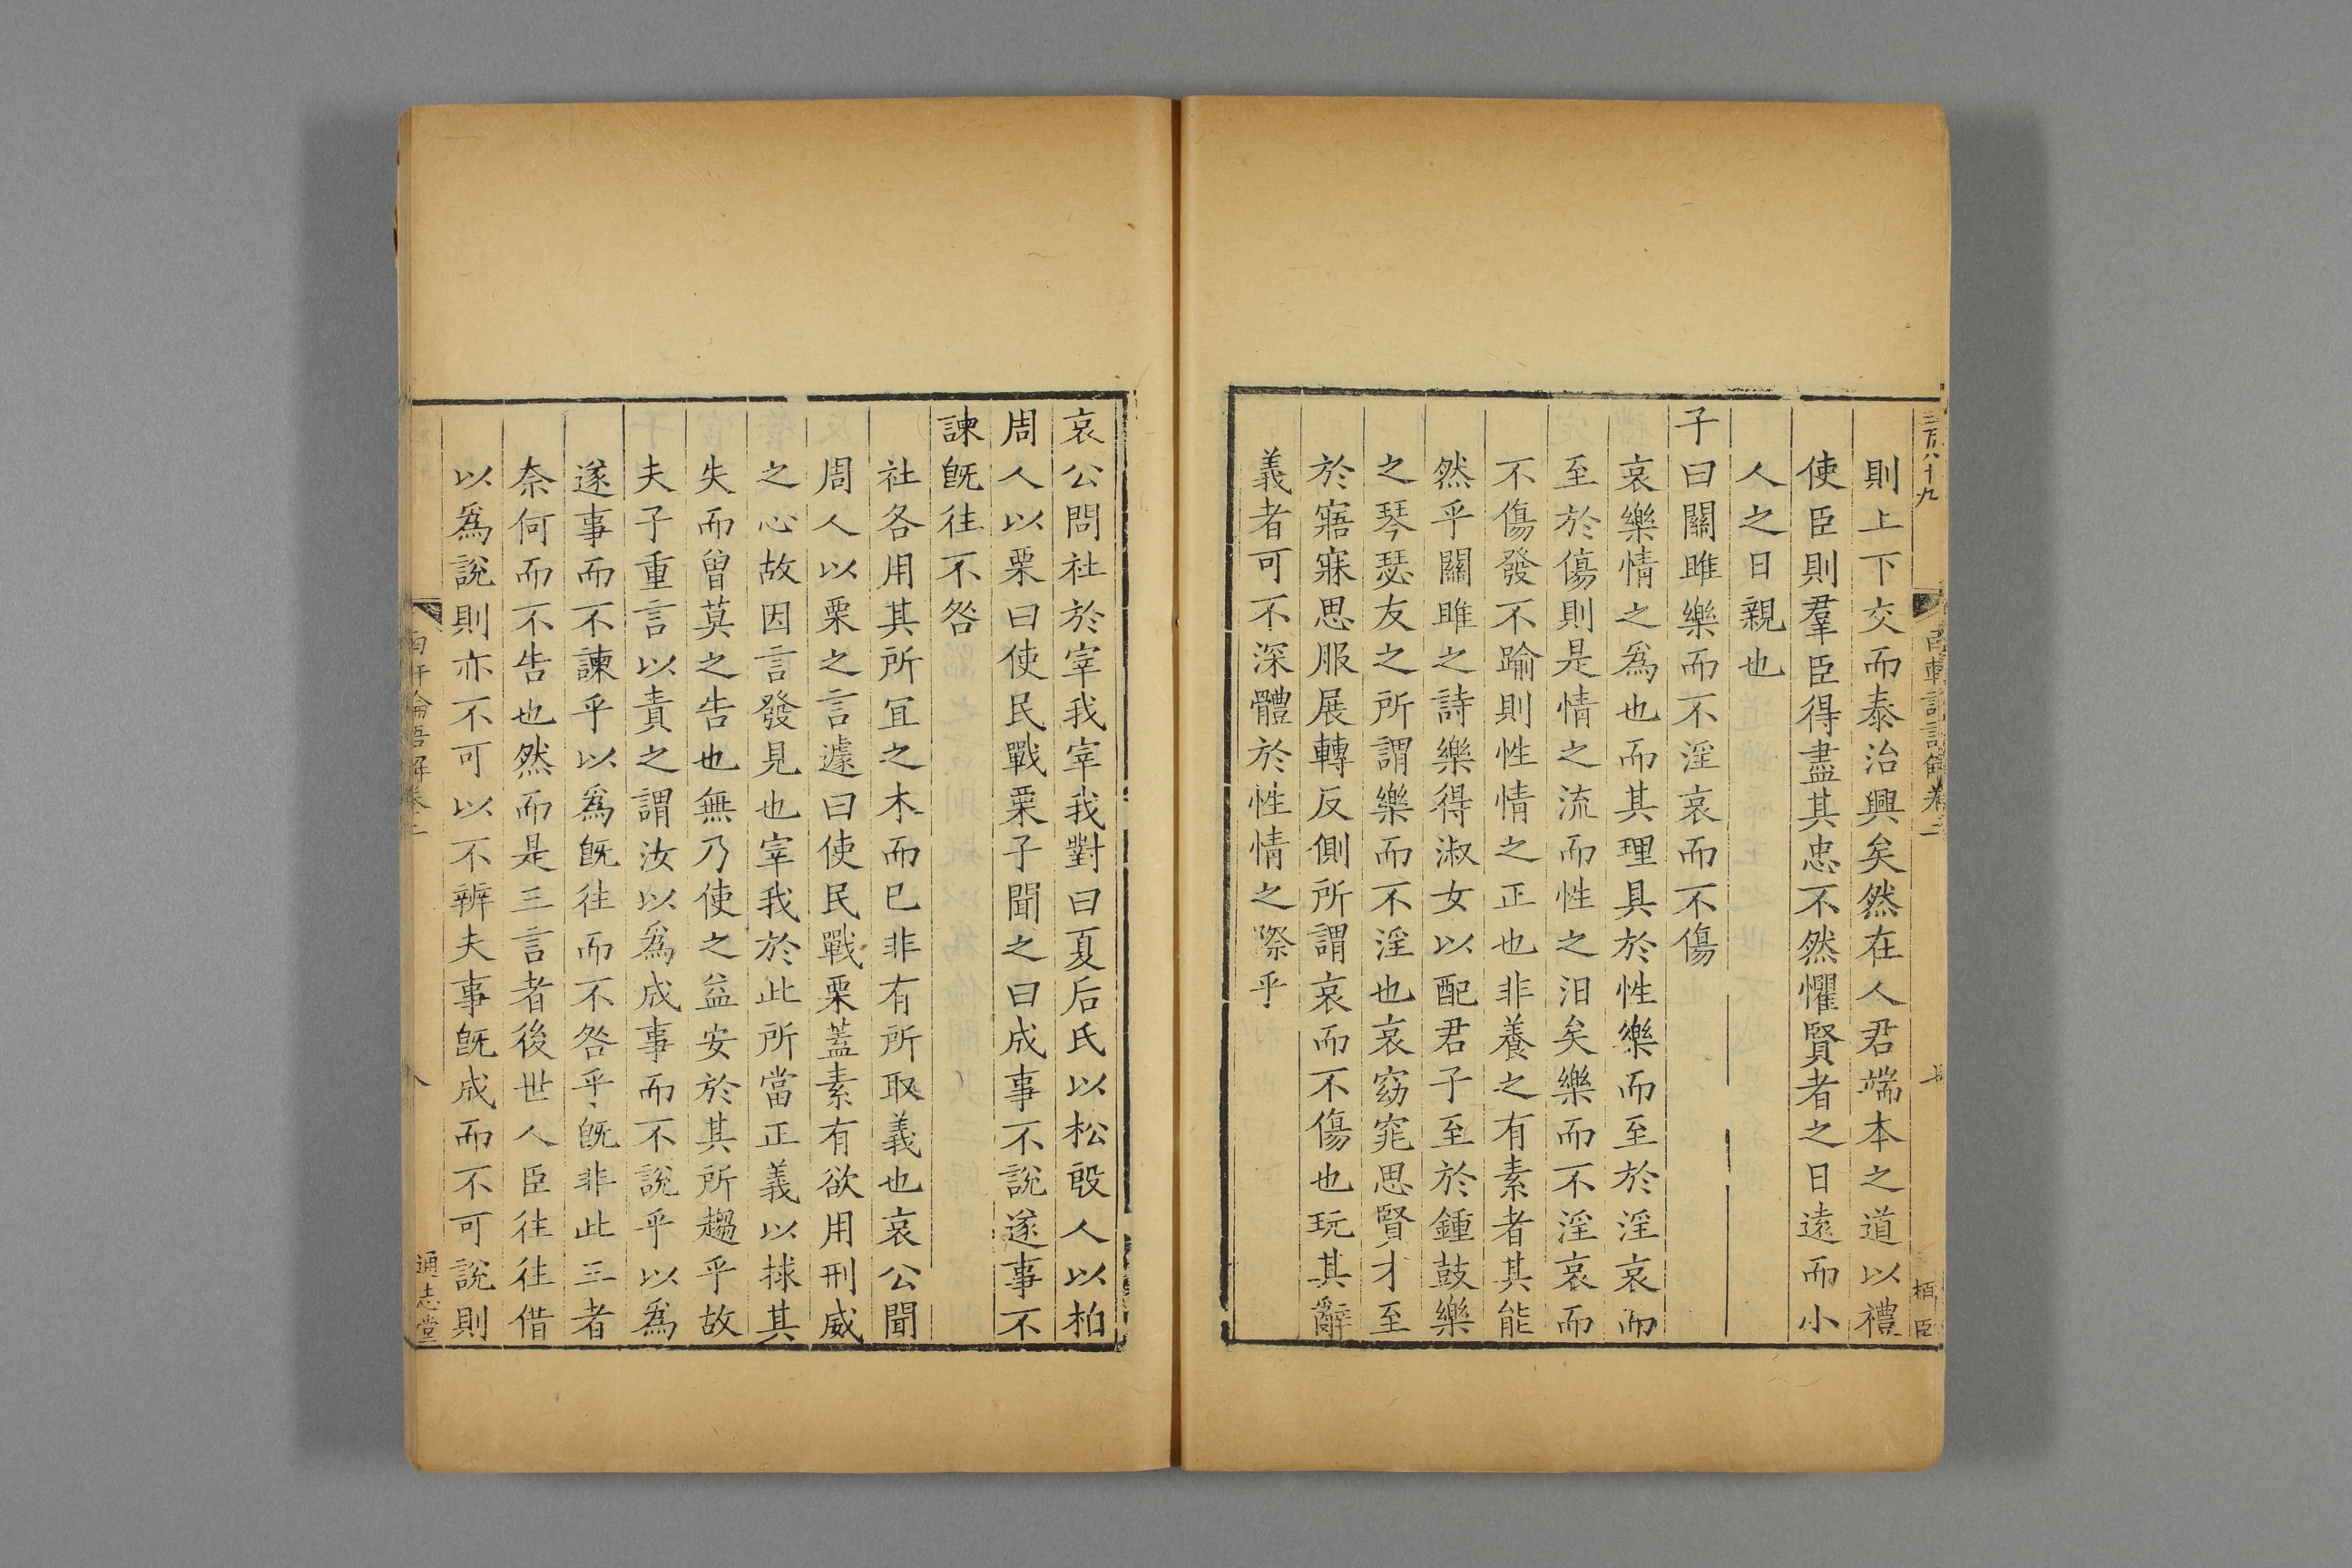 三百八十九
則上下交而泰治興矣然在人君端本之道以禮
使臣則羣臣得盡其忠不然懼賢者之日遠而小
人之日親也
子曰關雎樂而不淫哀而不傷
哀樂情之爲也而其理具於性樂而至於淫哀而
至於傷則是情之流而性之汩矣樂而不淫哀而
不傷發不踰則性情之正也非養之有素者其能
然乎關雎之詩樂得淑女以配君子至於鍾鼓樂
之琴瑟友之所謂樂而不淫也哀窈窕思賢才至
於寤寐思服展轉反側所謂哀而不傷也玩其辭
義者可不深體於性情之際乎
哀公問社於宰我宰我對曰夏后氏以松殷人以柏
周人以栗曰使民戰栗子聞之曰成事不說遂事不
諫旣往不咎
社各用其所宜之木而已非有所取義也哀公聞
周人以栗之言遽曰使民戰栗蓋素有欲用刑威
之心故因言發見也宰我於此所當正義以捄其
失而曾莫之告也無乃使之益安於其所趨乎故
夫子重言以責之謂汝以爲成事而不說乎以爲
遂事而不諫乎以爲旣往而不咎乎旣非此三者
奈何而不告也然而是三言者後世人臣往往借
以爲說則亦不可以不辨夫事旣成而不可說則
南軒論語解卷二
八
通志堂